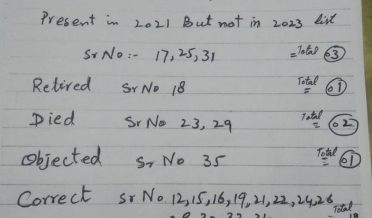 Present in 2021 But not in 2023 list
Sr No :- 17, 25, 31 = Total 03
Retired Sr No 18 Total = 01
Died Sr No 23, 29 Total = 02
Objected Sr No 35 Total = 01
Correct Sr No. 12, 15, 16, 19, 21, 22, 24, 26
Total